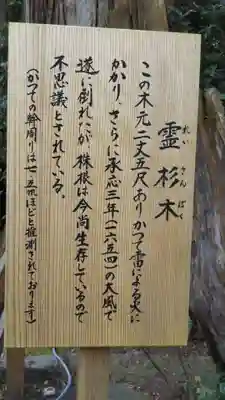 霊杉木
れい さん ぼく
この木元二丈五尺ありかつて雷による火に
かかり、さらに承応三年(一六五四)の大風で
遂に倒れたが、株根は今尚生存しているので
不思議とされている。
(かつての幹周りは七・五mほどと推測されております)